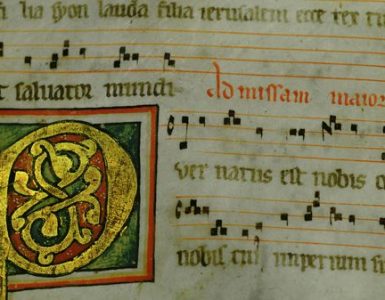 fi lia syon lauda filia ierusalem ecce rex
t saluator mundi Ad missam maior
P uer natus est nobis
nobis cui imperium su